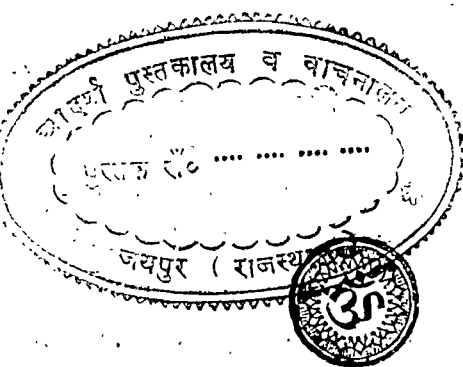 आदर्श पुस्तकालय व वाचनालय
पुस्तक सं० .... .... .... ....
जयपुर ( राजस्थान
ॐ